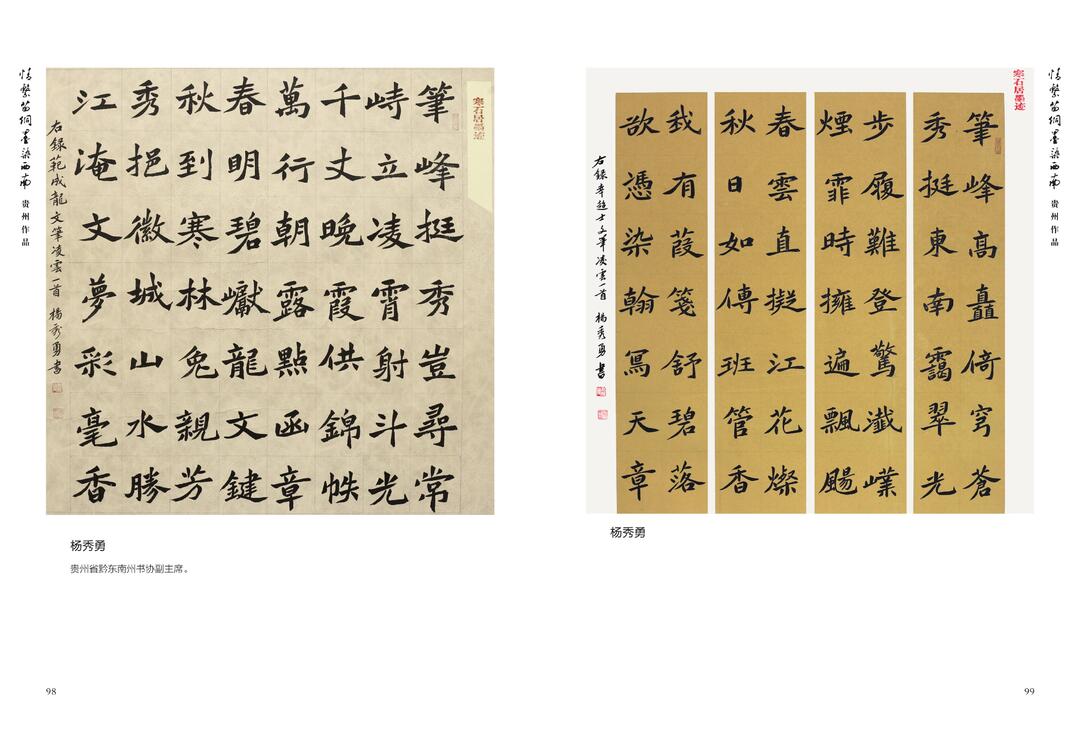 情繫苗侗墨染西南
贵州作品
寒石居墨迹
筆峰挺秀豈尋常
峙立凌霄射斗光
千丈晚霞供錦帙
萬行朝露點函章
春明碧巘龍文鍵
秋到寒林兔親芳
秀挹徽城山水勝
江淹文夢彩毫香
右録範成龍文筆凌雲一首 楊秀勇書
杨秀勇
贵州省黔东南州书协副主席。
98
情繫苗侗墨染西南
贵州作品
寒石居墨迹
筆峰高矗倚穹蒼
秀挺東南靄翠光
步履難登驚嶫
煙霏時擁遍飄颺
春雲直擬江花燦
秋日如傳班管香
我有葭箋舒碧落
欲憑染翰寫天章
右録士文筆凌雲一首 楊秀勇書
杨秀勇
99